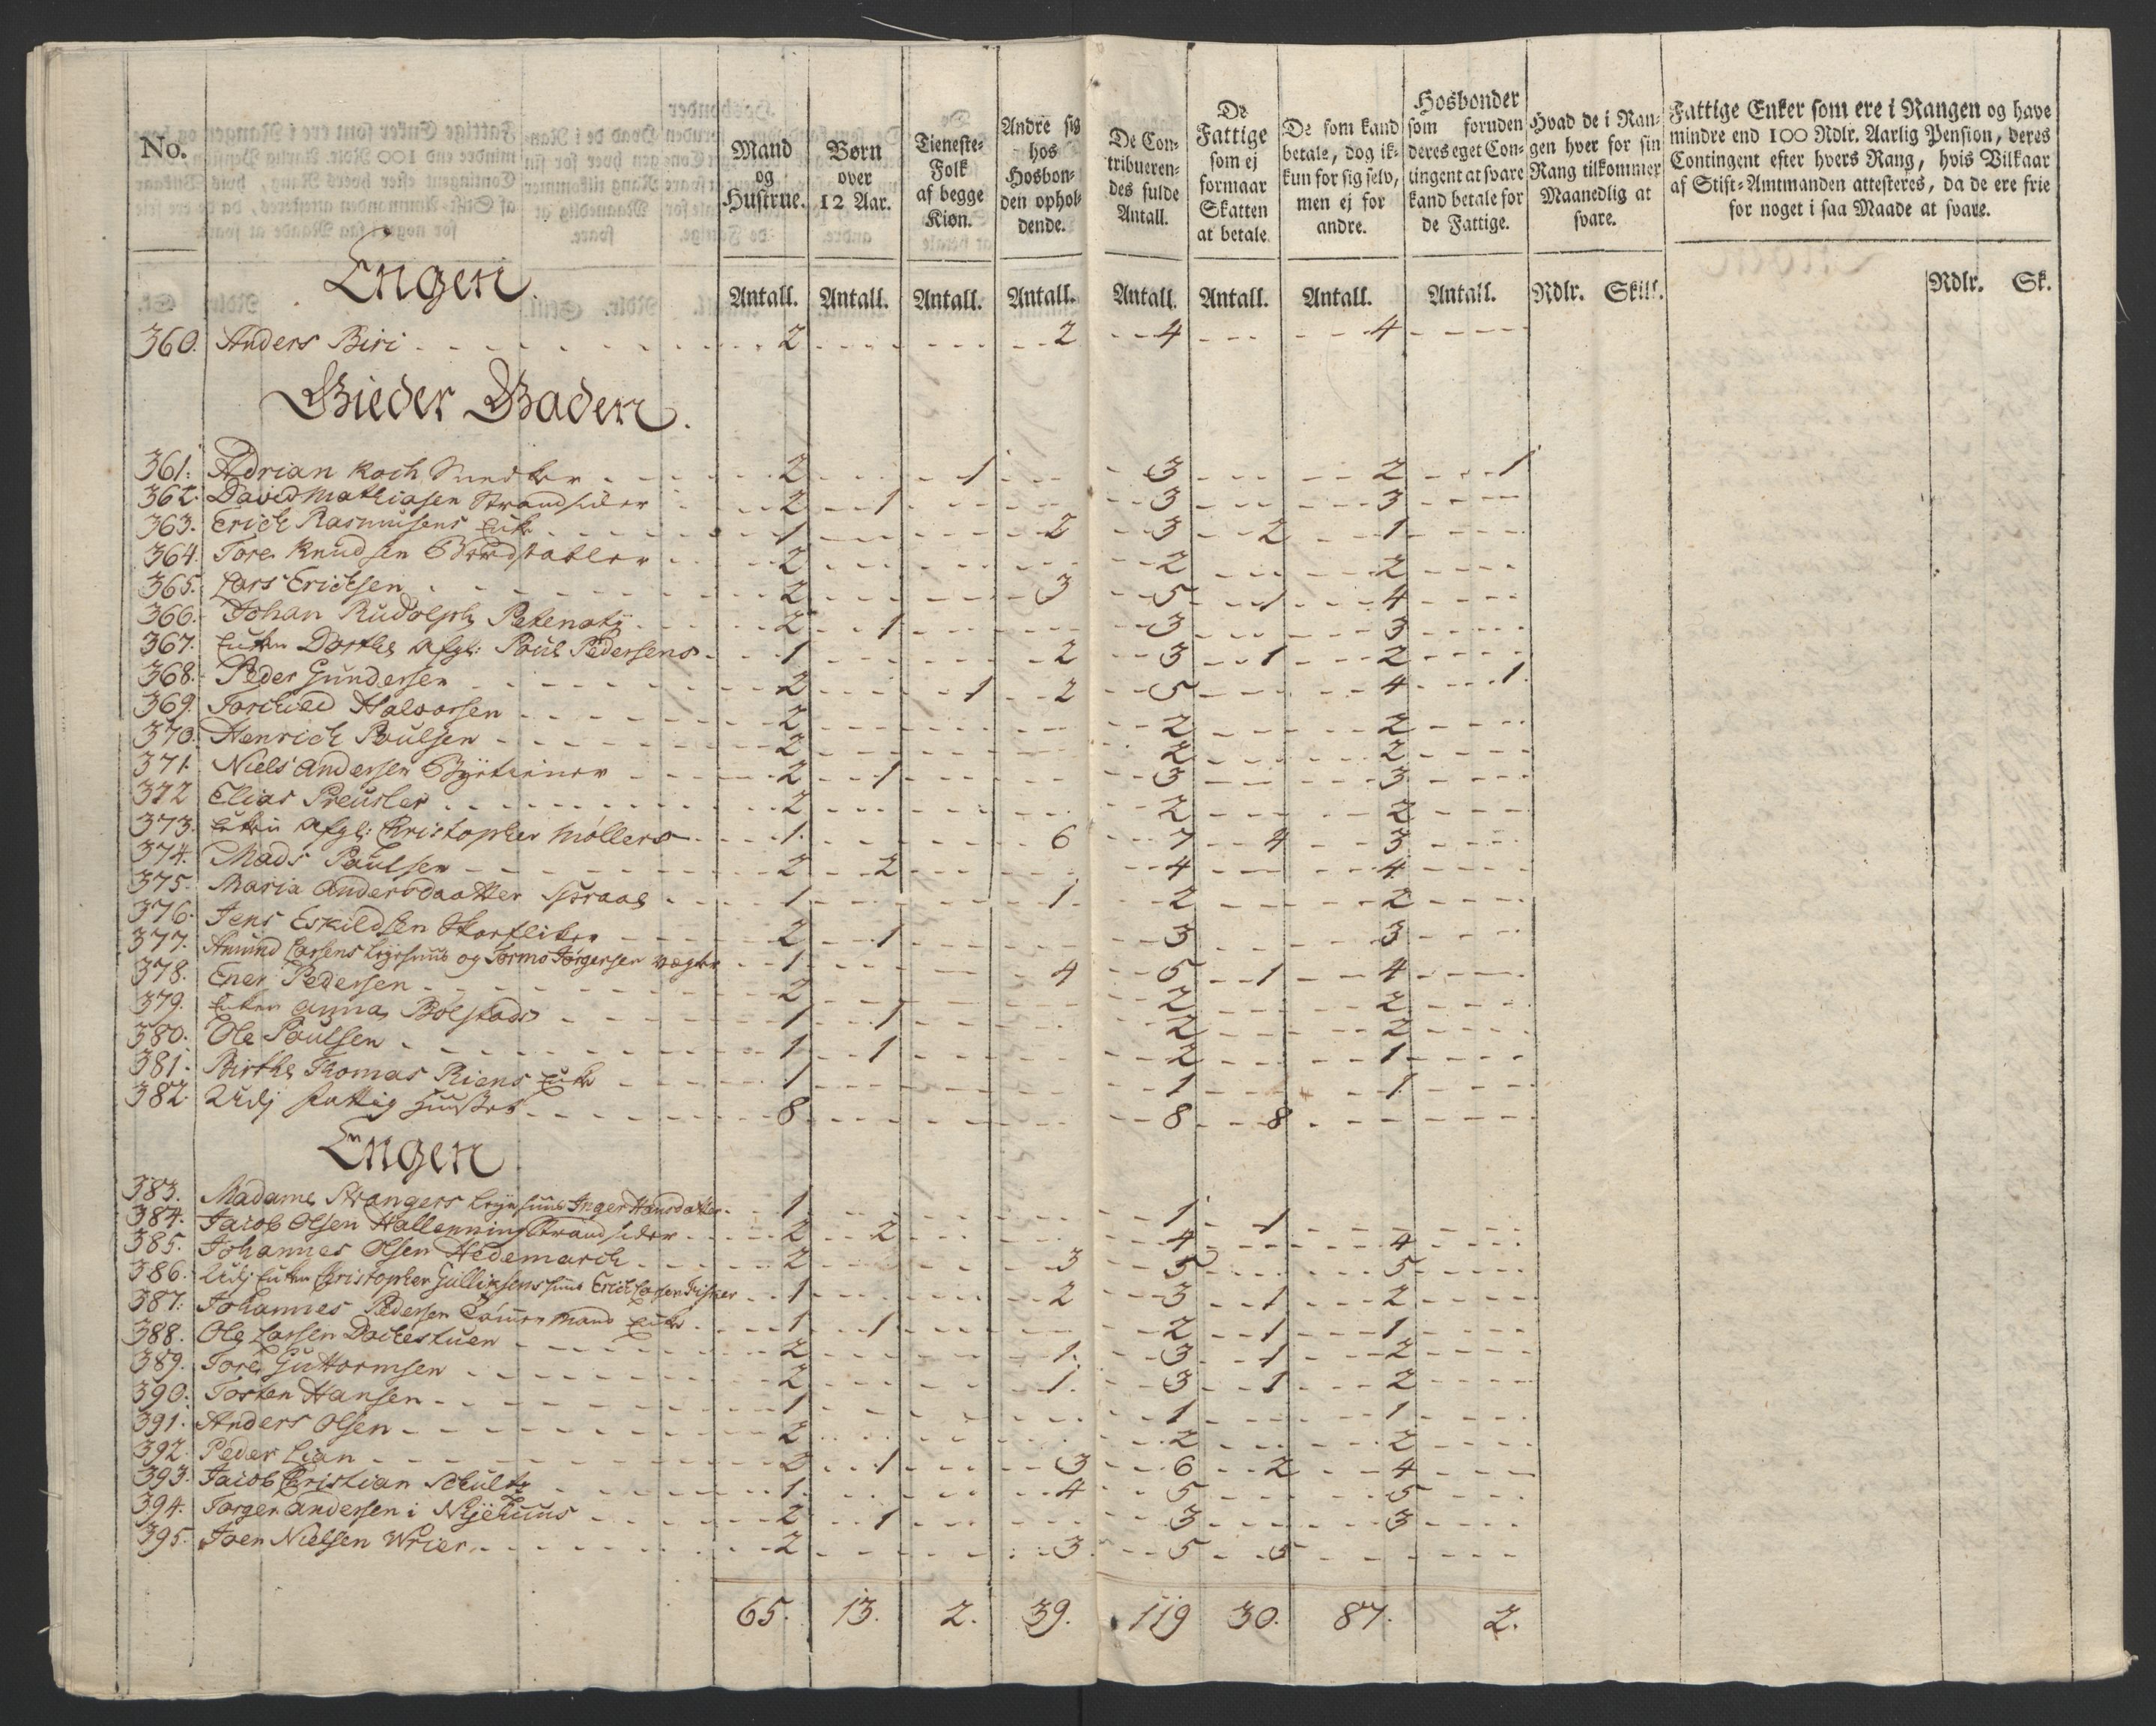 No. Mand og Hustrue. Børn over 12 Aar. Tieneste-Folk af begge Kiøn. Andre sig hos Hosbonden opholdende. De Contribuerendes fulde Antall. De Fattige som ej formaar Skatten at betale. De som kand betale, dog ikkun for sig selv, men ej for andre. Hosbonder som foruden deres eget Contingent at svare kand betale for de Fattige. Hvad de i Rangen hver for sin Rang tilkommer Maanedlig at svare. Fattige Enker som ere i Rangen og have mindre end 100 Rdlr. Aarlig Pension, deres Contingent efter hvers Rang, hvis Vilkaar af Stift-Amtmanden attesteres, da de ere frie for noget i saa Maade at svare.
Antall. Antall. Antall. Antall. Antall. Antall. Antall. Antall. Rdlr. Skill. Rdlr. Sk.
Engen.
360. Anders Biri 2 2 4 4
Gieder Baden.
361. Adrian Koch 2 1 3 2 1
362. David Mathiasen Strandsider 2 1 3 3
363. Erich Rasmusens Enke 1 2 3 2 1
364. Tore Knudsen 2 2 2
365. Lars Erichsen 2 3 5 1 4
366. Johan Rudolph Petenati 2 1 3 3
367. Enken Dorthe Afgl: Poul Pedersens 1 2 3 1 2
368. Peder Gundersen 2 1 2 5 4 1
369. Torchild Halvorsen 2 2 2
370. Henrich Poulsen 2 2 2
371. Niels Andersen Bytiener 2 1 3 3
372 Elias Preusler 2 2 2
373. Enken Afgl: Christopher Møllers 1. 6 7 4 3
374. Mads Paulsen 2 2 4 4
375. Maria Andersdaatter 1 1. 2 2
376. Jens Eskildsen 2 1 3 3
377. Amund Larsens og Tormo Jørgensen Vægter 1 4 5 1 4
378. Ener Pedersen 2 2 2
379. Enken Anna Bolstads 1 1 2 2
380. Ole Poulsen 1 1 2 1
381. Birthe Thomas Riens Enke 1 1 1
382. Udj fattig Huuset 8 8 8
Engen
383. Madame Strangers Inger Hansdatter 1 1 1
384. Jacob Olsen Hallenning Strandsider 2 2 4 4
385. Johannes Olsen Hedemarch 2 3 5 5
386. Udj Enken Christopher Gulliksens Huus Erich Larsen Fisker 1 2 3 1 2
387. Johannes Pedersen Tømmermand Enke 1 1 2 1 1
388. Ole Larsen Dockestuen 2 1. 3 1 2
389. Tore Guttormsen 2 1. 3 1 2
390. Torsten Hansen 1 1 1
391. Anders Olsen 2 2 2
392. Peder Lian 2 1 3 6 2 4
393. Jacob Christian Schultz 1. 4 5 5
394. Jørgen Andersen i Nyehuus 2 1 3 3
395. Joen Nielsen Wrier 2 3 5 5
65. 13. 2. 39. 119 30. 87. 2.